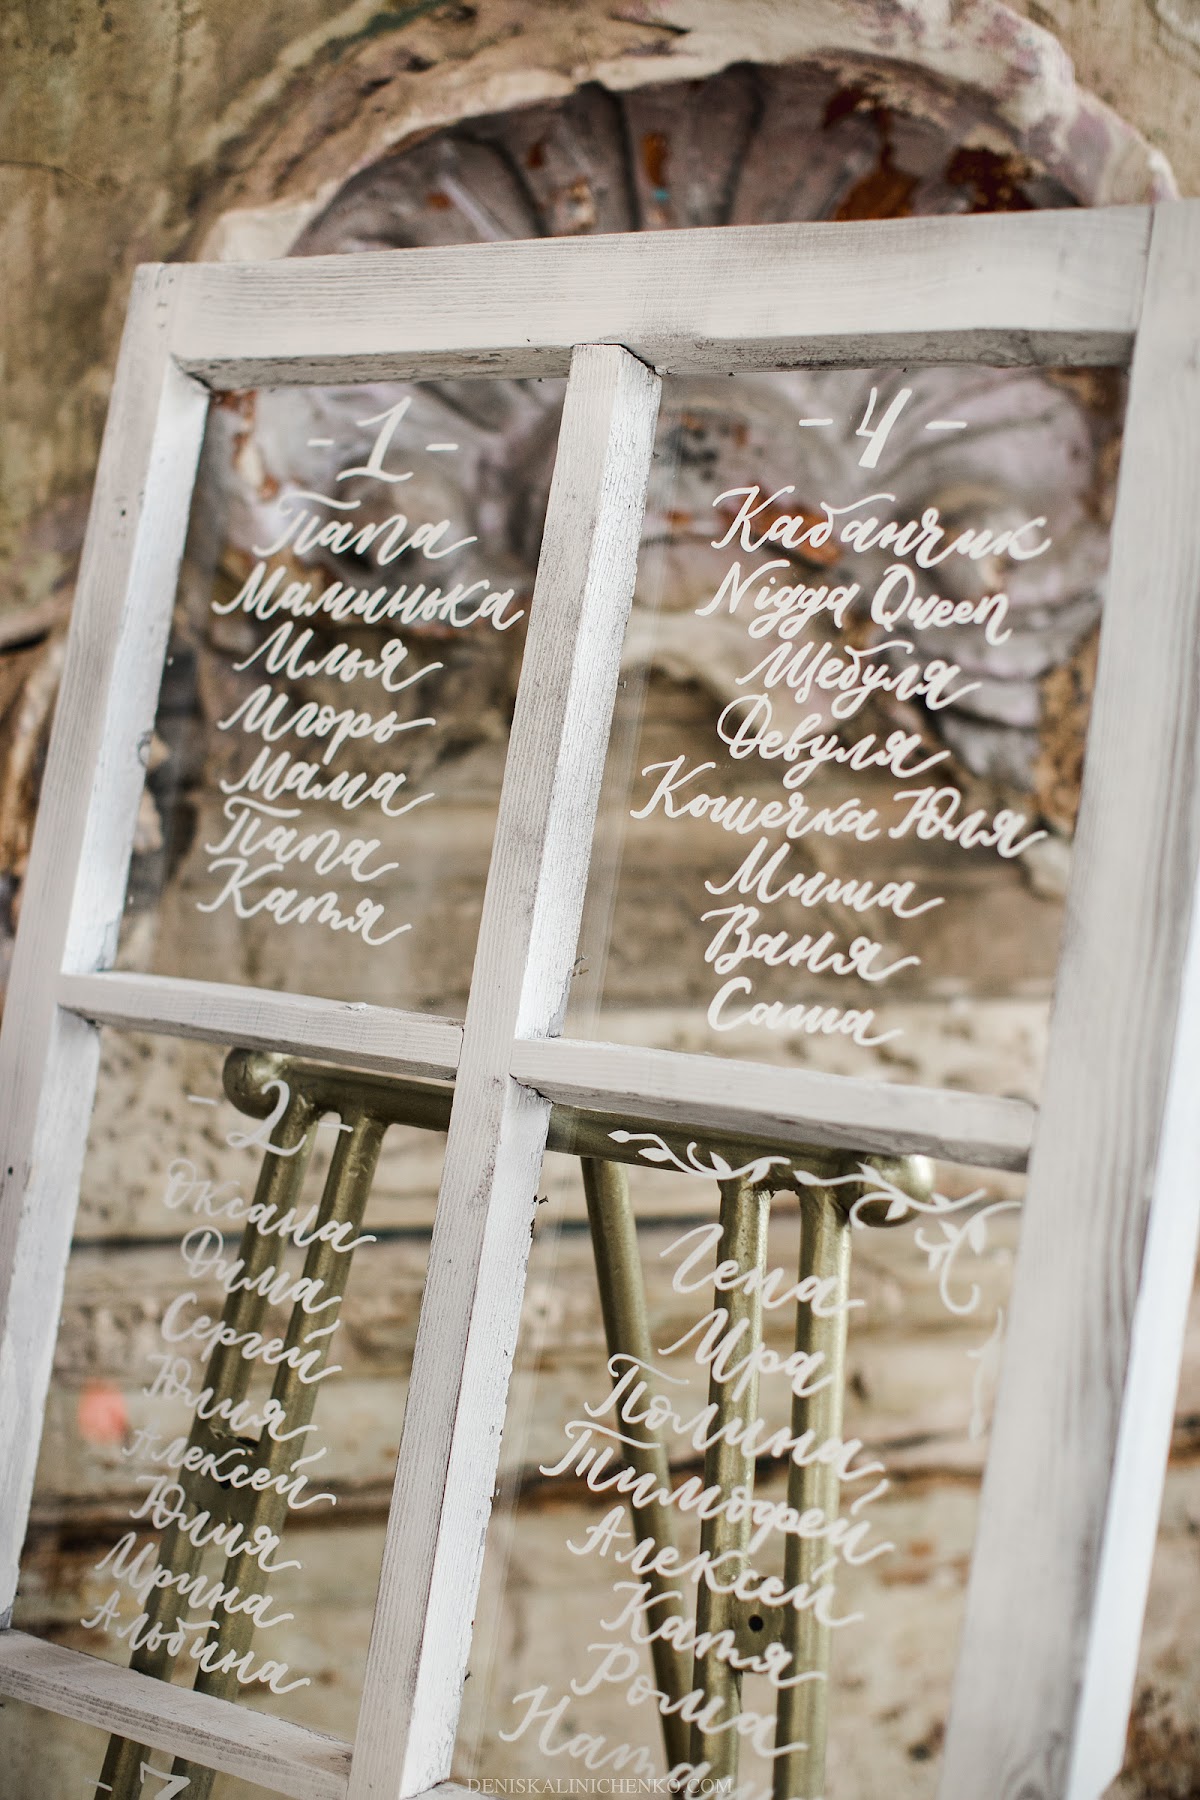 - 1 -
Папа
Маминька
Илья
Игорь
Мама
Папа
Катя
- 4 -
Кабанчик
Nigga Queen
Щебуля
Девуля
Кошечка Юля
Миша
Ваня
Саша
- 2 -
Оксана
Дима
Сергей
Юлия
Алексей
Юлия
Ирина
Альбина
Гена
Ира
Полина
Тимофей
Алексей
Катя
Рома
DENISKALINICHENKO.COM